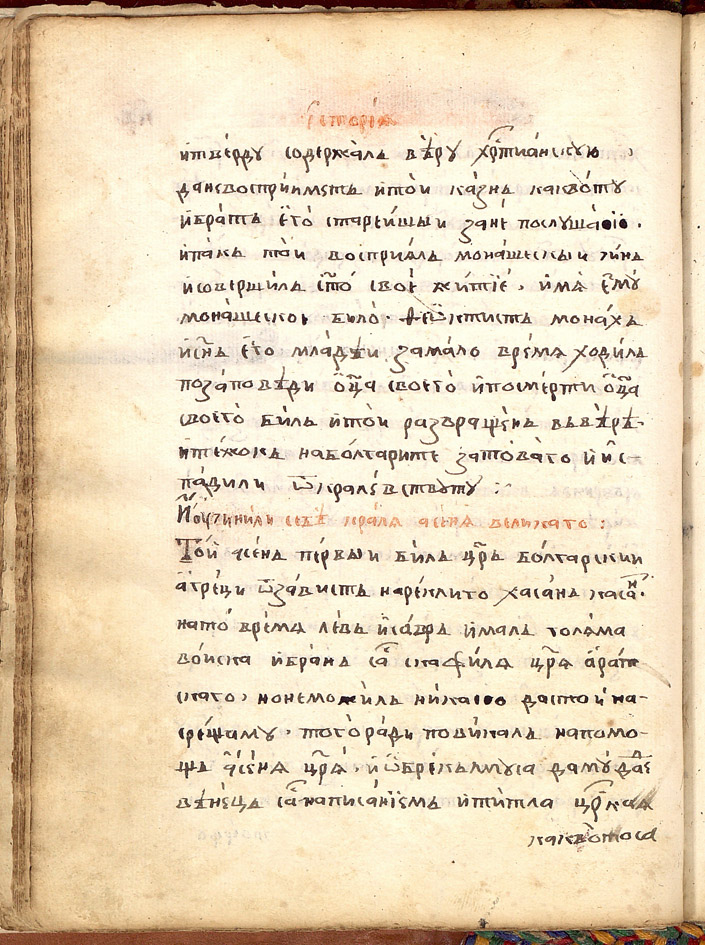 Їсторїѧ
и҆ тве́рду содержалъ вѣ́ру хр҃тиа́нскую ,
да не восприи҆метъ и҆ то́и ка́знь какво́ту
и҆ бра́тъ е҆го̀ старе́ишыи зане́ послуша
и҆ такъ то́и восприа́лъ мона́шескыи чи́нъ
и҆ совершилъ ст҃о свое́ жи́тїе , и҆мѧ е҆мꙋ̀
мона́шеское било̀ Ѳеѡ҆ктистъ мона́хъ
и҆ сн҃ъ е҆го̀ мла́дѣи за мало вре́мѧ ходи́лъ
по за́повѣди ѻ҆ц҃а своего̀ и҆ по сме́рти ѻ҆ц҃а
своего̀ би́лъ и҆ то́и развраще́нъ въ вѣ́рѣ
и҆ те́жокъ на болгарите затова́го и҆ и҆с-
па́дили ѿ кралѐвству́ту :
И҆ оучинили себѣ̀ кралѧ а҆се́нѧ великаго :
То́й а҆се́нъ пе́рвыи би́лъ цр҃ъ бо́лгарскии
а҆ гре́ци ѿ за́висть нарекли го хаса́нъ каса́н .
на то̀ вре́мѧ ле́въ и҆са́връ и҆малъ голѧма
во́иска и҆ бра́нъ са скафи́лѧ цр҃ѧ а҆рап
скаго , но не може́илъ никако да стои на-
сре́щаму , того ра́ди пови́калъ на помо-
щъ а҆се́нѧ цр҃ѧ , и҆ ѡ҆бре́калмуса да му да́де
вѣне́цъ са написа́нїемъ и҆ ти́тла цр҃ка
какво́то са